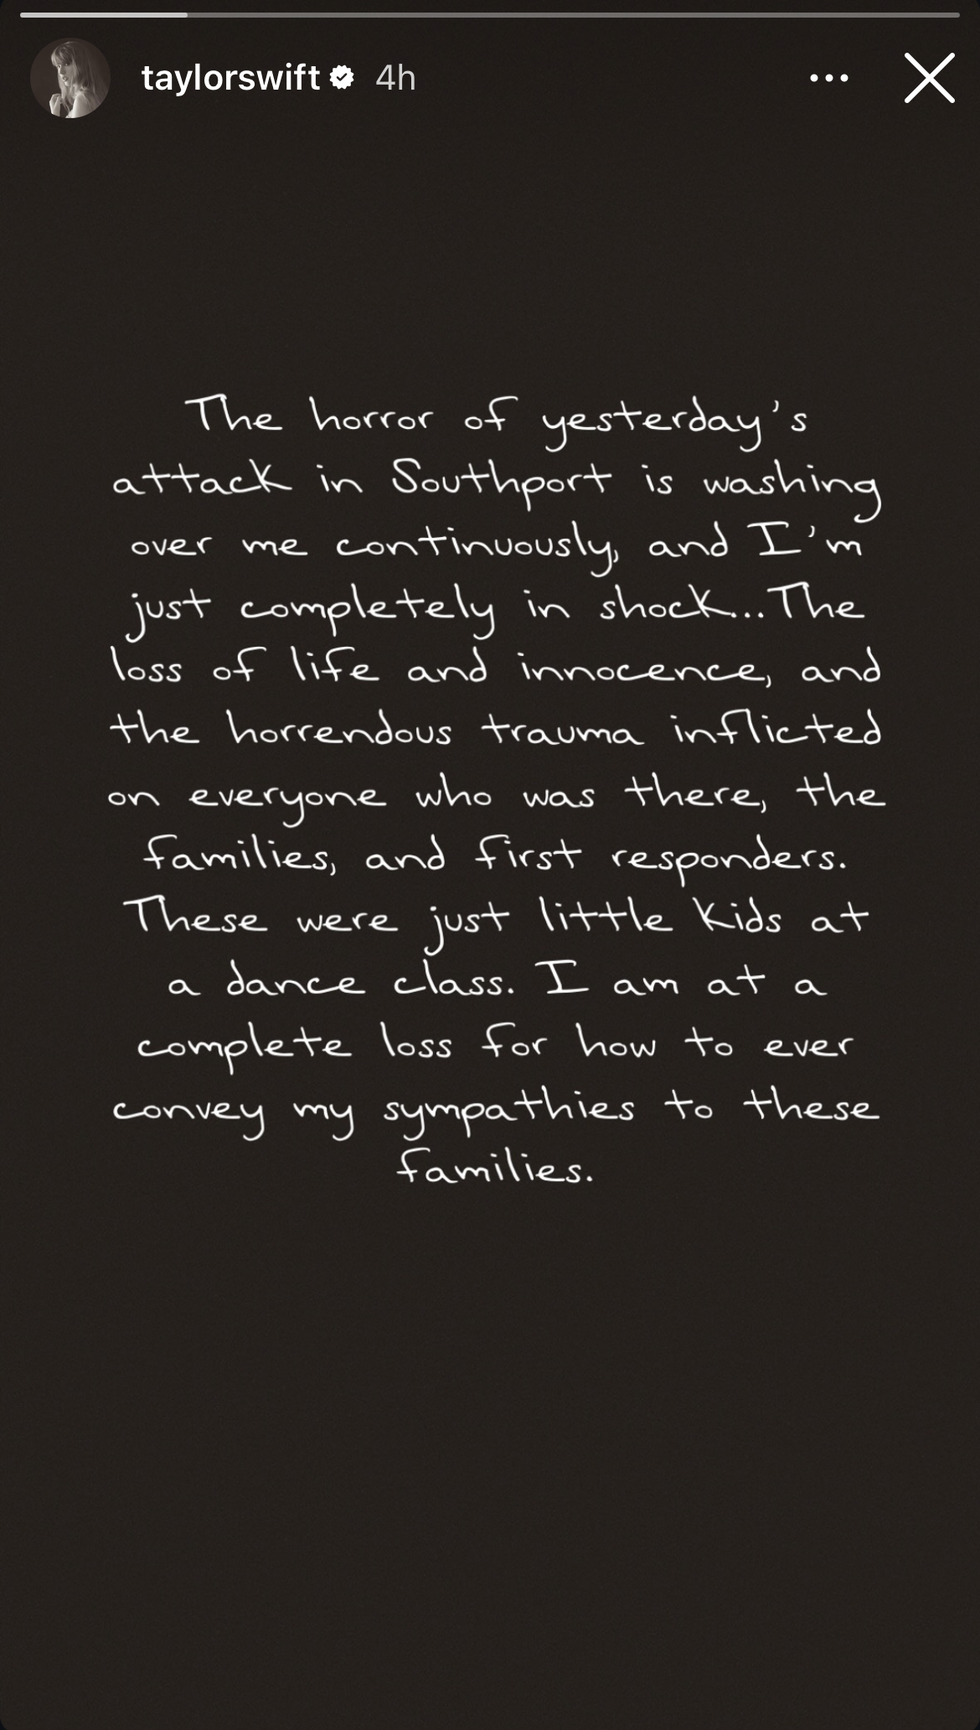 taylorswift 4h
The horror of yesterday's
attack in Southport is washing
over me continuously, and I'm
just completely in shock...The
loss of life and innocence, and
the horrendous trauma inflicted
on everyone who was there, the
families, and first responders.
These were just little kids at
a dance class. I am at a
complete loss for how to ever
convey my sympathies to these
families.